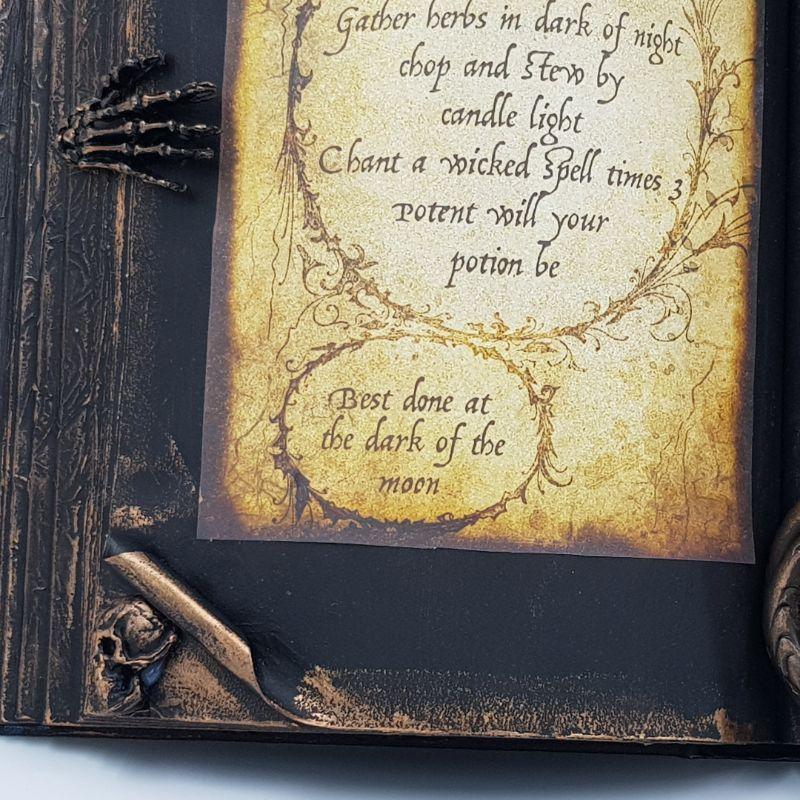 Gather herbs in dark of night
chop and stew by
candle light
Chant a wicked spell times 3
Potent will your
potion be
Best done at
the dark of the
moon